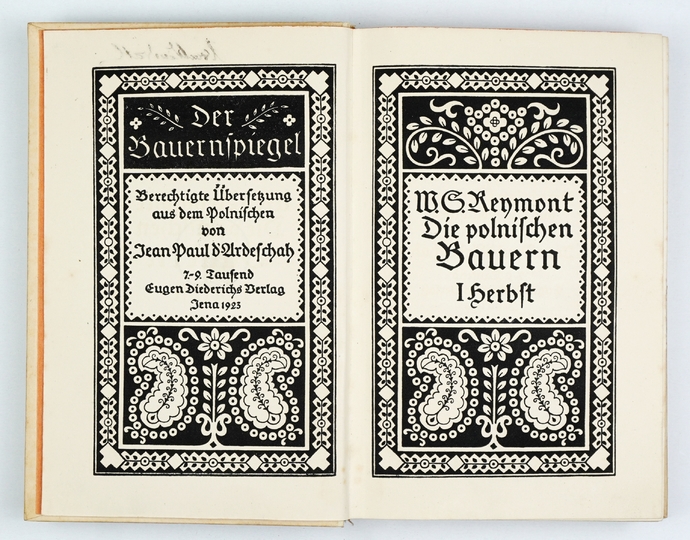 Der
Bauernſpiegel
Berechtigte Überſetzung
aus dem Polniſchen
von
Jean Paul d'Ardeſchah
7.-9. Tauſend
Eugen Diederichs Verlag
Jena 1923
W. S. Reymont
Die polniſchen
Bauern
I Herbſt